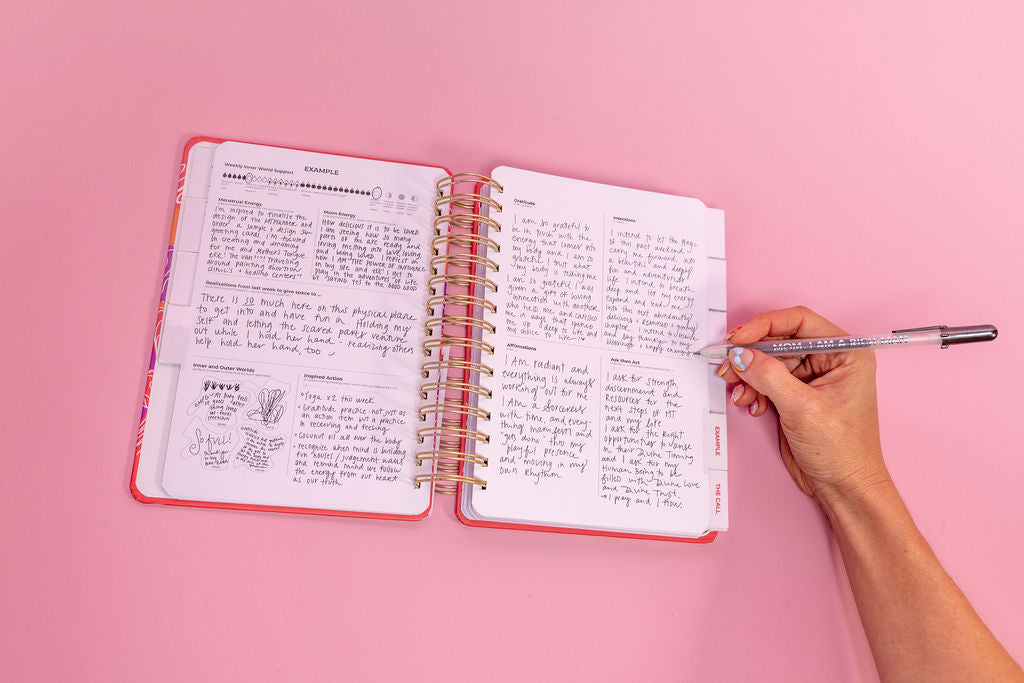 Weekly Inner World Support
EXAMPLE
Menstrual Energy
I'm inspired to finalize the
design of the MTplanner and
order a sample + design
greeting cards. I'm focused
on creating and dreaming
for me and Mother's Tongue.
ERK! The van traveling
around painting abortion
clinic's + healing centers
Moon Energy
How delicious it is to be loved
I am seeing how so many
parts of me are ready and
loving melting into love, loving
and being loved. I reflect on
how I AM THE POWER OF
in my life and I get to
play in the adventures of life
by saying yes to the GOOD GOOD
Realizations from last week to give space to ...
There is so much here on this physical plane
to get into and have fun in. Holding my
self and letting the scared parts venture
out while I hold her hand - realizing others
help hold her hand, too
Inner and Outer Worlds
My Body feels
SO FULL!
Inspired Action
Yoga x2 this week
Gratitude practice - not just as
an action item but a practice
in receiving and feeling
Coconut oil all over the body
recognize when mind is building
fun house / judgement walls
and remind mind we follow
the energy from our heart
as our truth
Gratitude
I am so grateful to
be in touch with the
energy that comes into
my body and I am so
grateful I trust what
my body is telling me
I am so grateful I was
given a gift of loving
connection with another
who held me and carried
me in ways that opened
me up deep to life and
to live
Intentions
I intend to let the magic
of this past weekend
lead me forward into
a beautiful and deeply
fun and adventurous
life. I intend to breath
deep and let my energy
expand and lead me
into this next abundantly
delicious + yummy
chapter. I intend to
and say thank you to my
blessings + happy energy
Affirmations
I am radiant and
everything is always
working out for me.
I am a sorceress
with time, and every-
thing I manifest and
"get done" thru my
playful presence
and moving in my
own rhythm
Ask then Act
I ask for strength,
discernment and
resources for the
next steps of MT
and my life.
I ask for the Right
opportunities to arise
in their Divine Timing
and I ask for my
Human Being to be
filled with Divine Love
and Divine Trust.
I pray and I flow.
EXAMPLE
THE CALL
MOM, I AM A RICH MAN